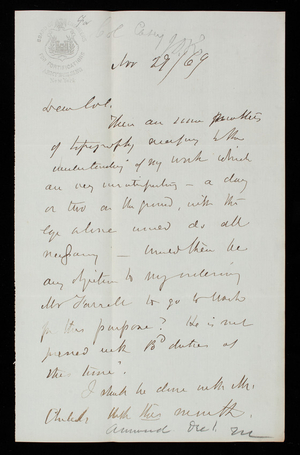 Col Casey
Nov 29/69
Dear Col.
There are some
of topography necessary to the
understanding of my work which
are very unsatisfactory – a day
or two on the ground, with the
alone would do all
necessary – would there be
any objection to my ordering
Mr Farrell to go to York
for this purpose? He is not
pressed with Bd duties at
the time.
I shall be done with Mr.
this month.
Answered Dec 1.